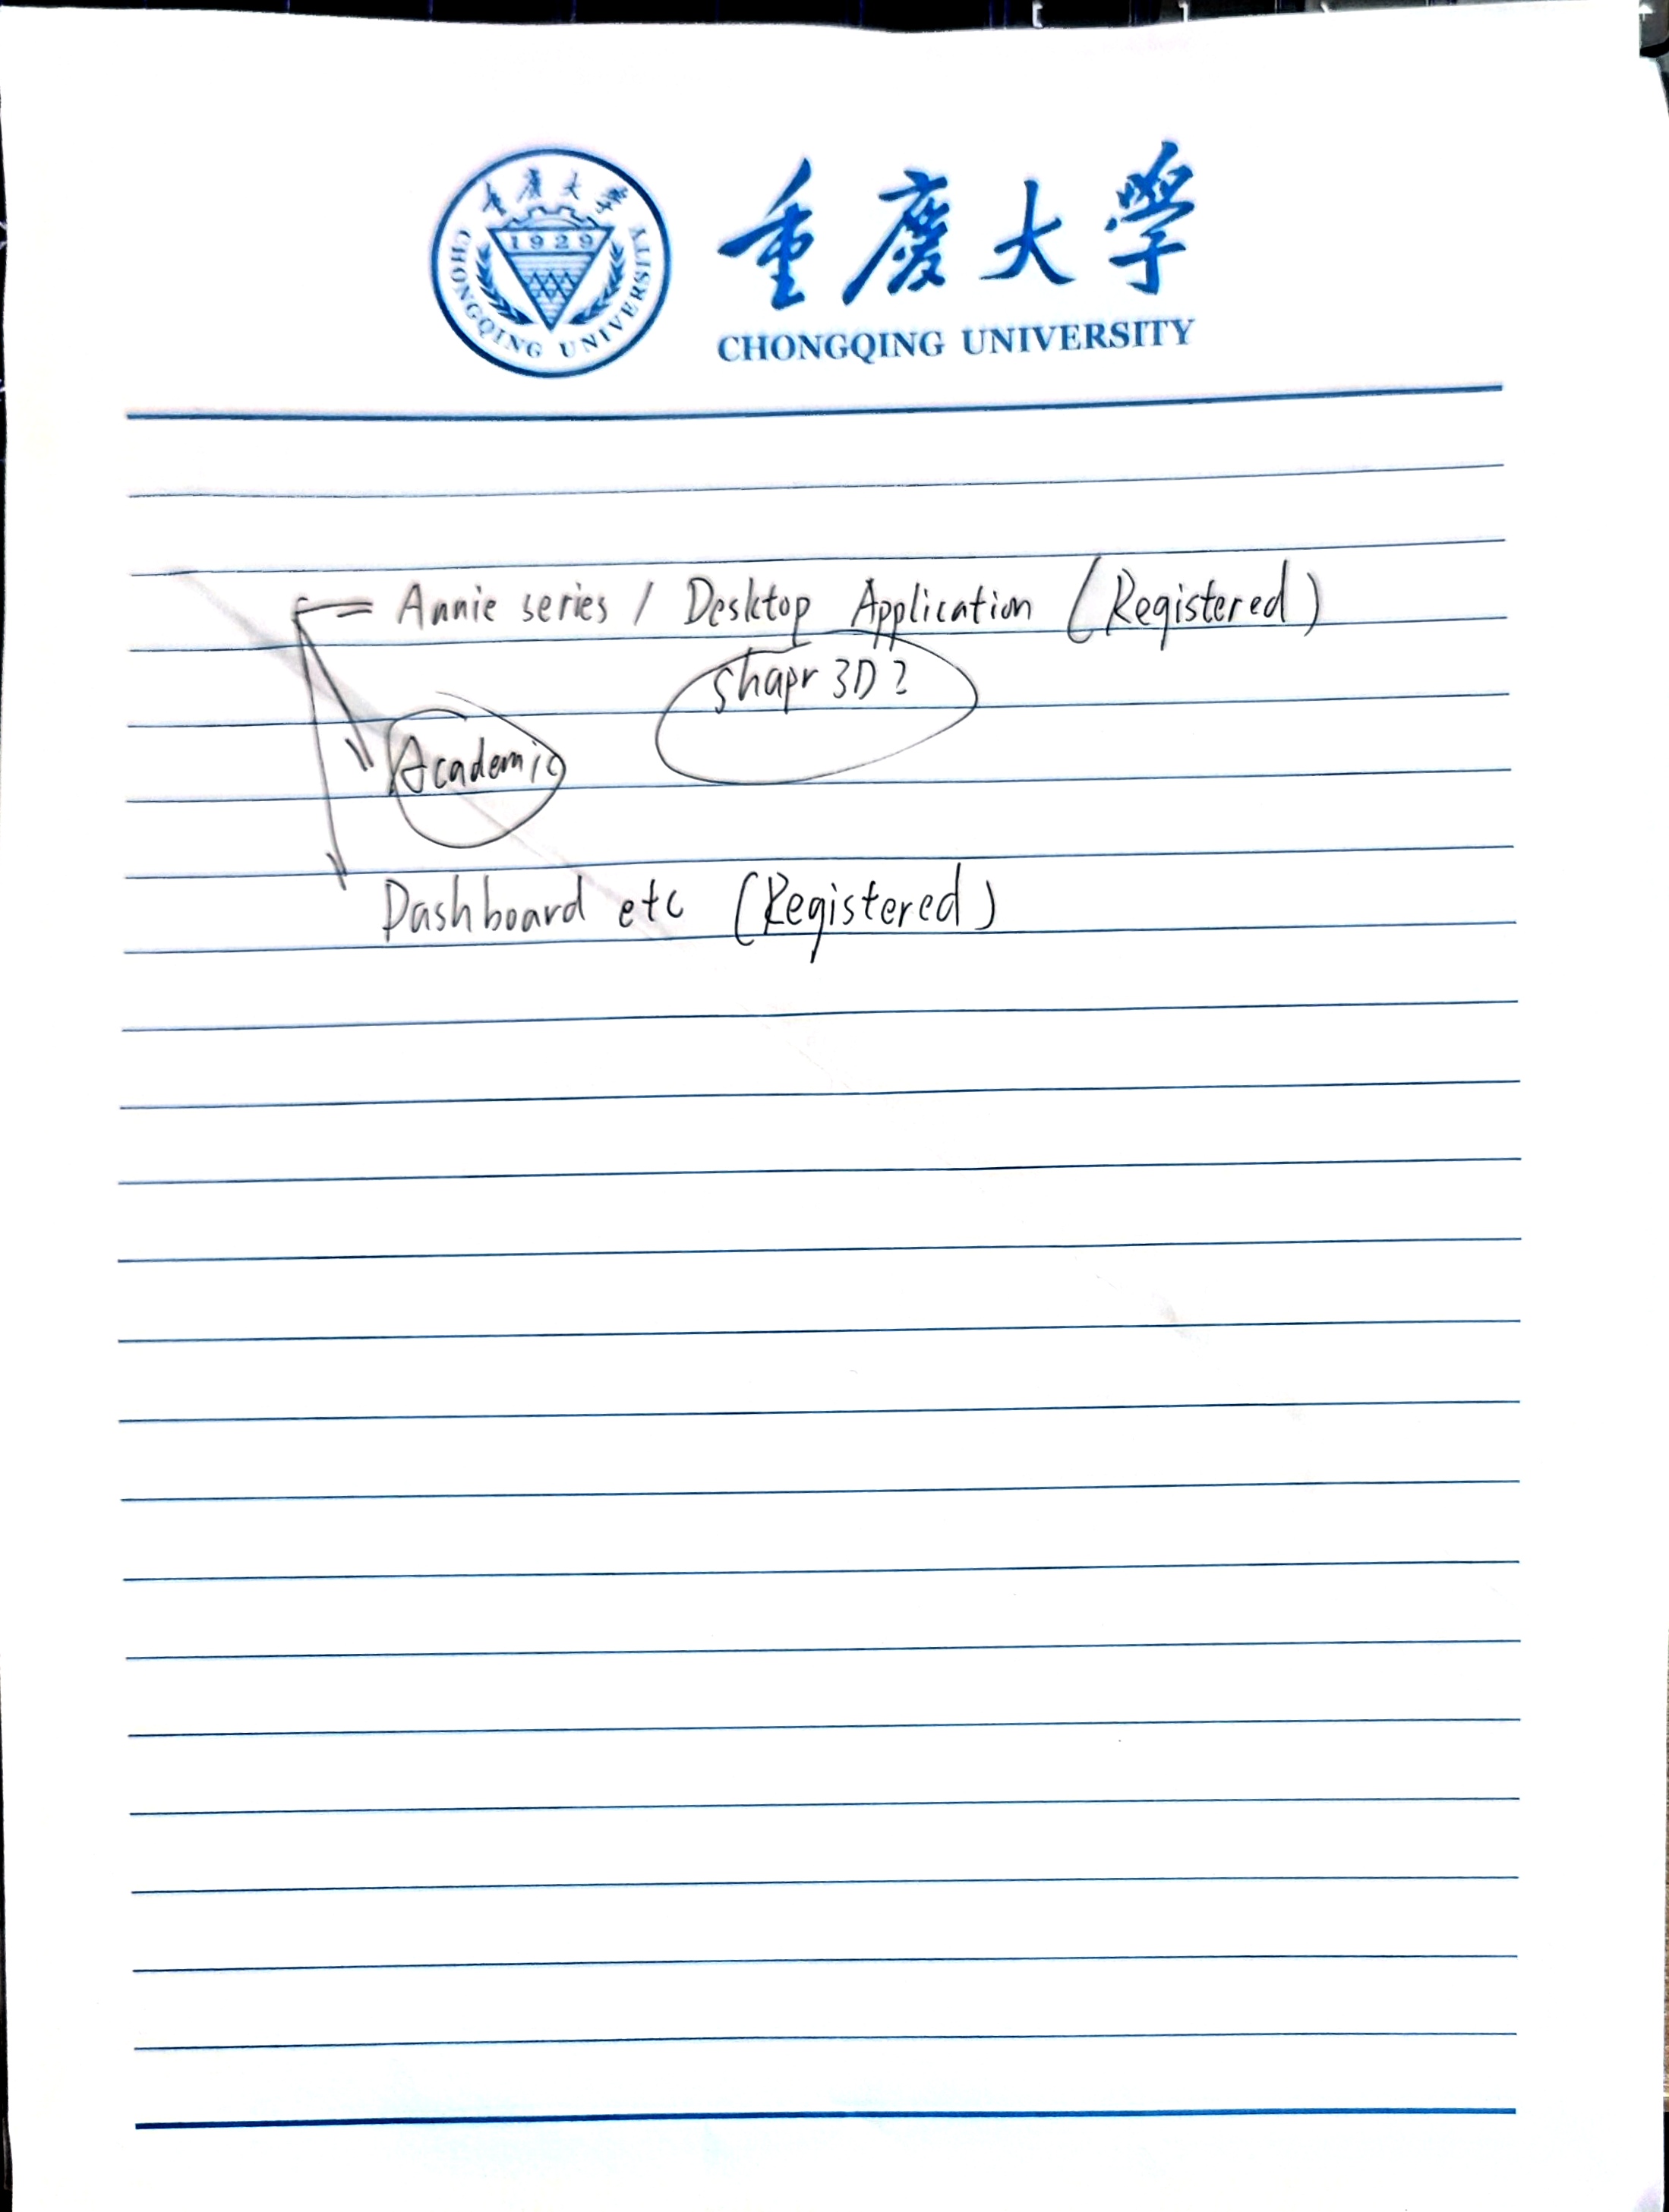 重慶大學
1929
CHONGQING UNIVERSITY
重慶大學
CHONGQING UNIVERSITY
Annie series / Desktop Application (Registered)
Shapr 3D?
Academic
Dashboard etc (Registered)